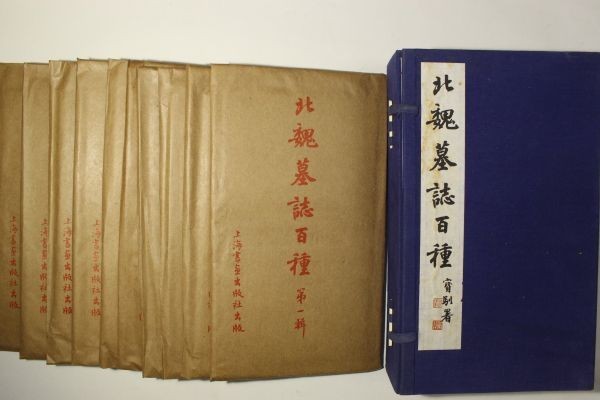 北魏墓誌百種
第一輯
上海書畫出版社出版
北魏墓誌百種
上海書畫出版社出版
上海書畫出版社出版
上海書畫出版社出版
上海書畫出版社出版